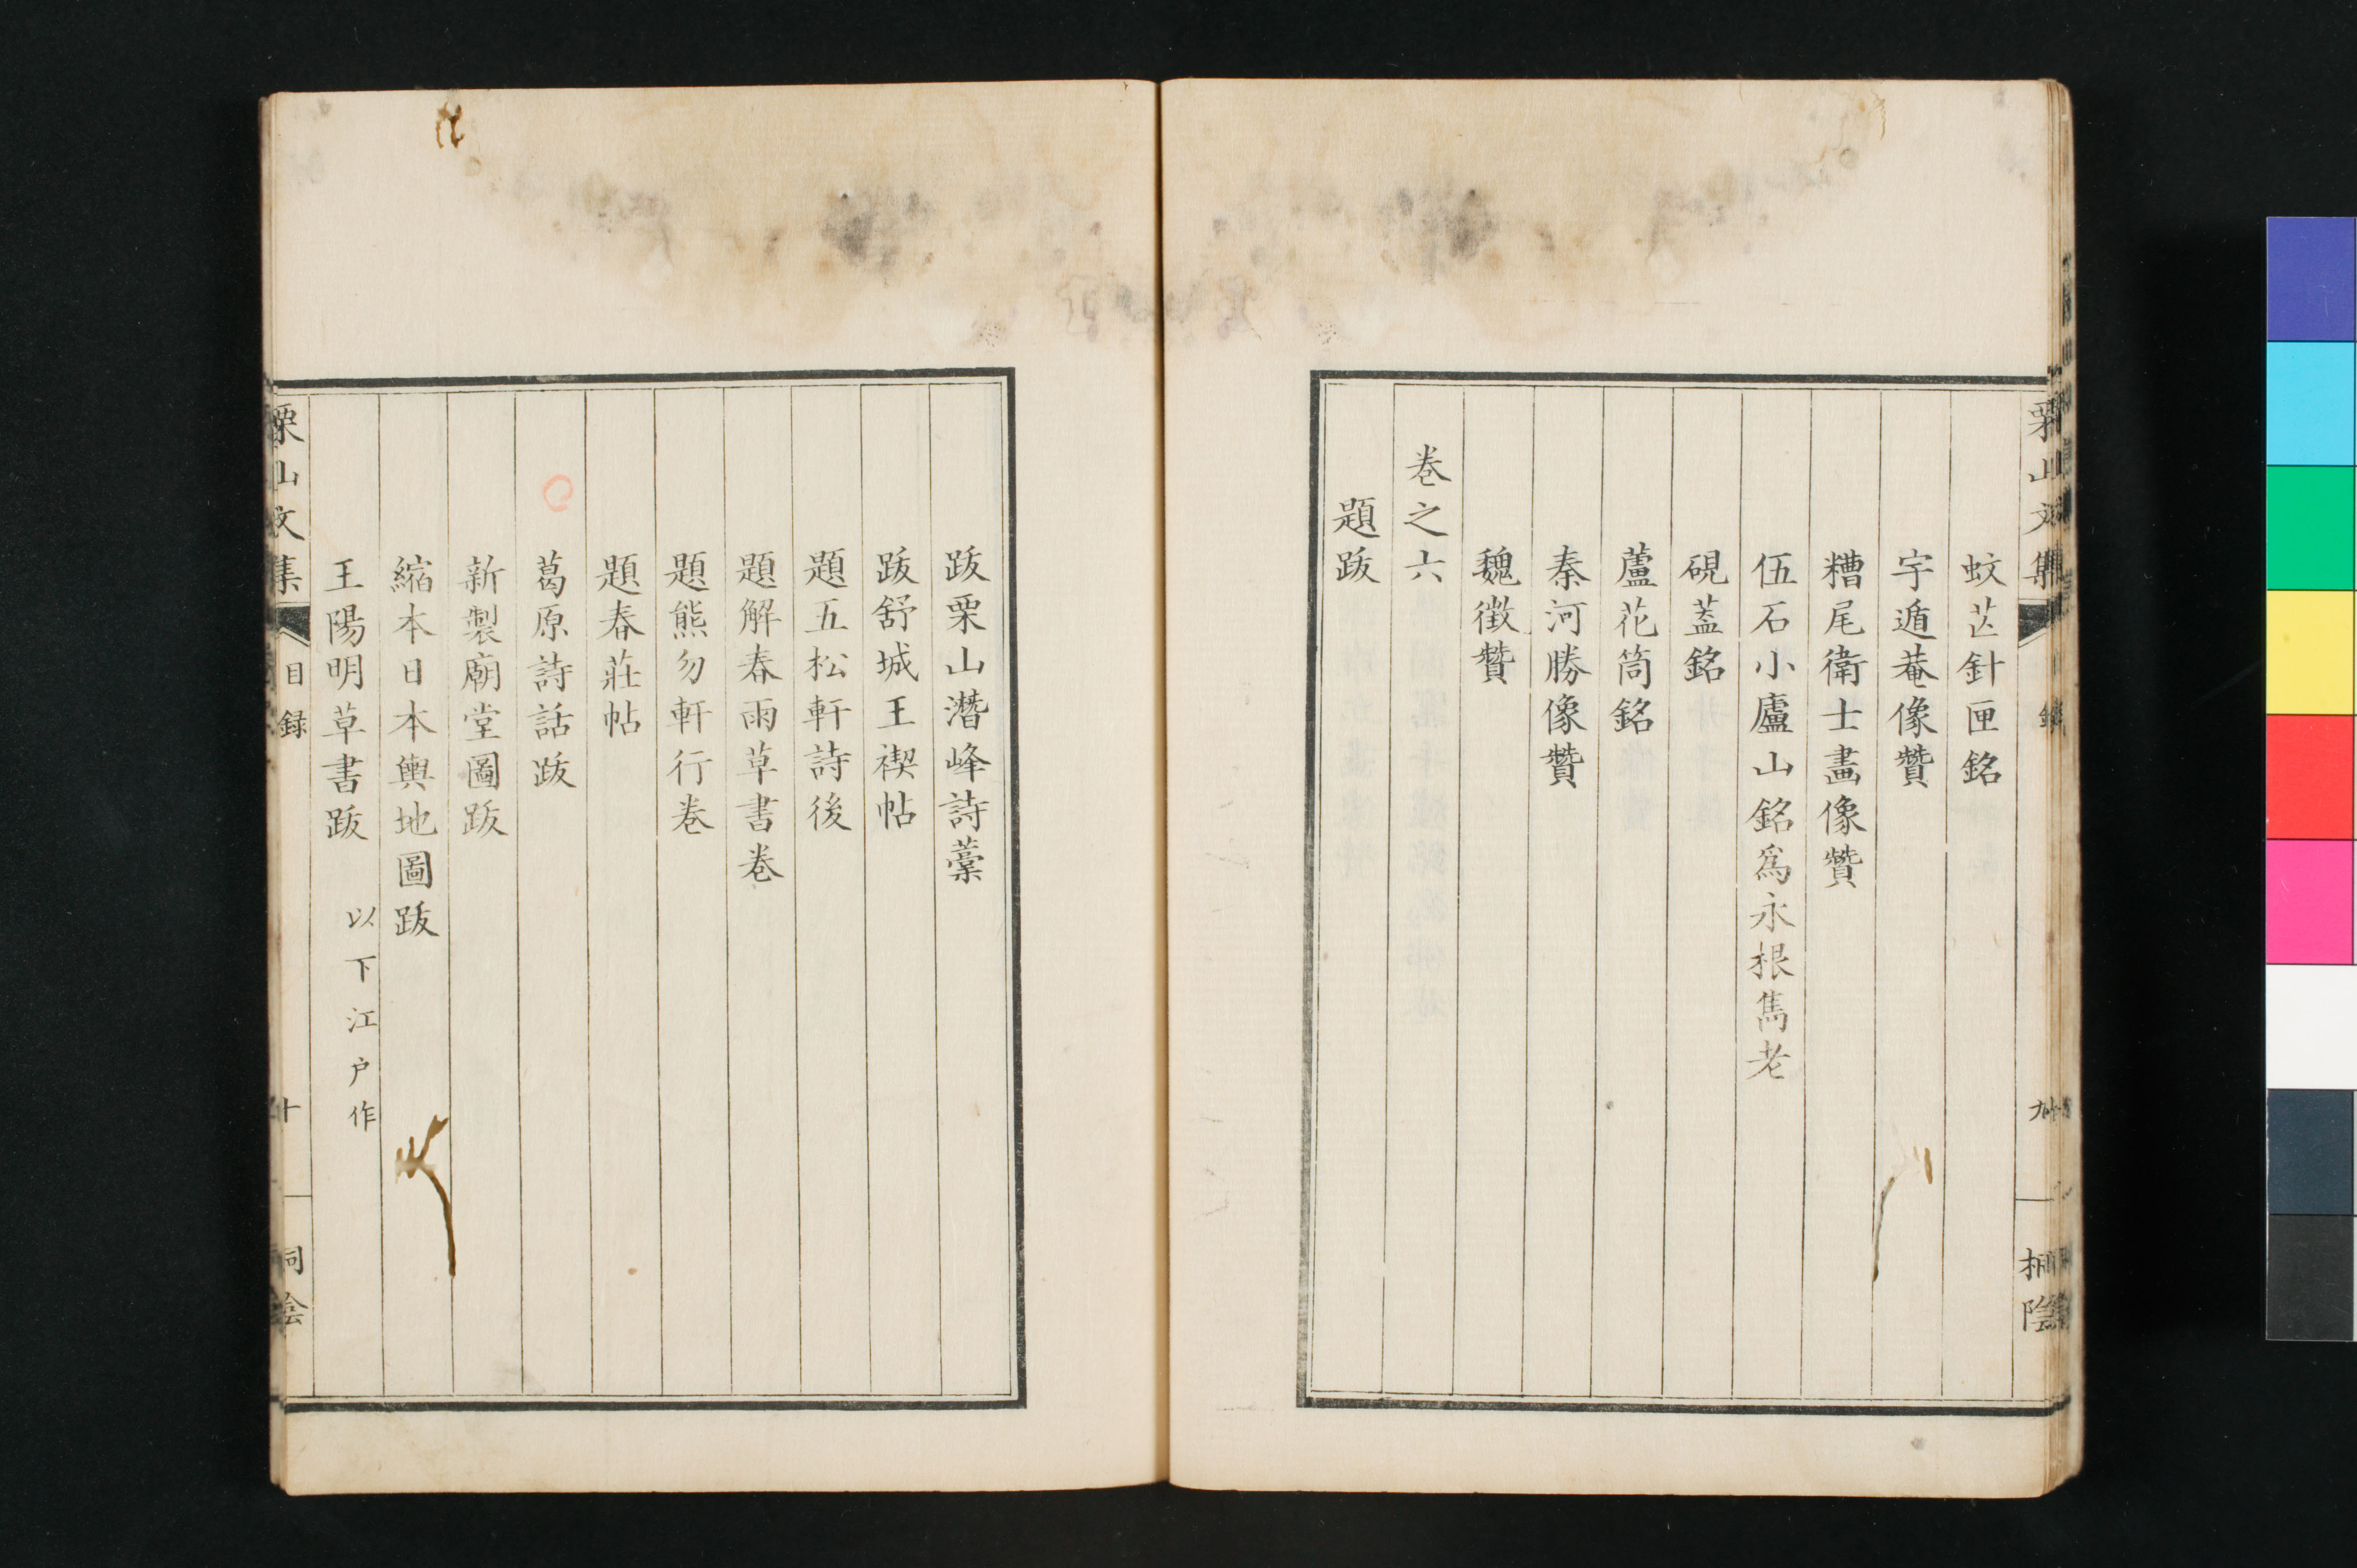 蚊芒針匣銘
宇遁菴像贊
糟尾衛士畵像贊
伍石小廬山銘爲永根雋老
硯蓋銘
蘆花筒銘
秦河勝像贊
魏徵贊
卷之六
題跋
跋栗山潛峰詩藁
跋舒城王禊帖
題五松軒詩後
題解春雨草書卷
題熊勿軒行卷
題春莊帖
葛原詩話跋
新製廟堂圖跋
縮本日本輿地圖跋
王陽明草書跋 以下江户作
栗山文集 目録 十